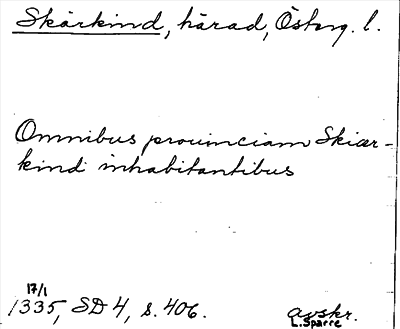 Skärkind, härad, Österg. l.
Omnibus prouinciam Skiær-
kind inhabitantibus
17/1
1335, SD 4, s. 406.
avskr.
L. Sparre